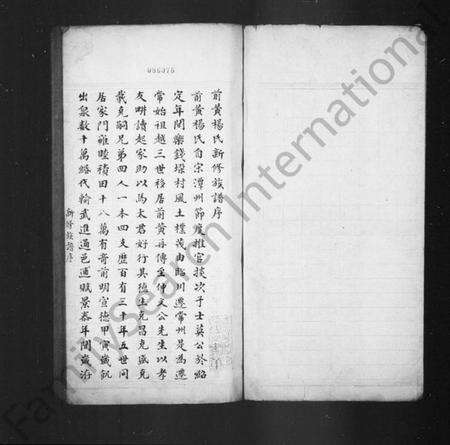 096376
前黃楊氏新修族譜序
前黃楊氏自宋潭州節度推官掞次子士莫公於紹
定年間樂錢堰村風土樸茂由臨川遷常州是為遷
常始祖越三世移居前黃再傳至仲文公先生以孝
友耕讀起家助以馬太君好行其德生克昌克盛克
敬克嗣兄弟四人一本四支歷百有三十年五世同
居家門雍睦積田十八萬有奇前明宣德甲寅歲飢
出粟數十萬緡代輸武進通邑逋賦景泰年間歲洊
新修族譜序
FamilySearch International